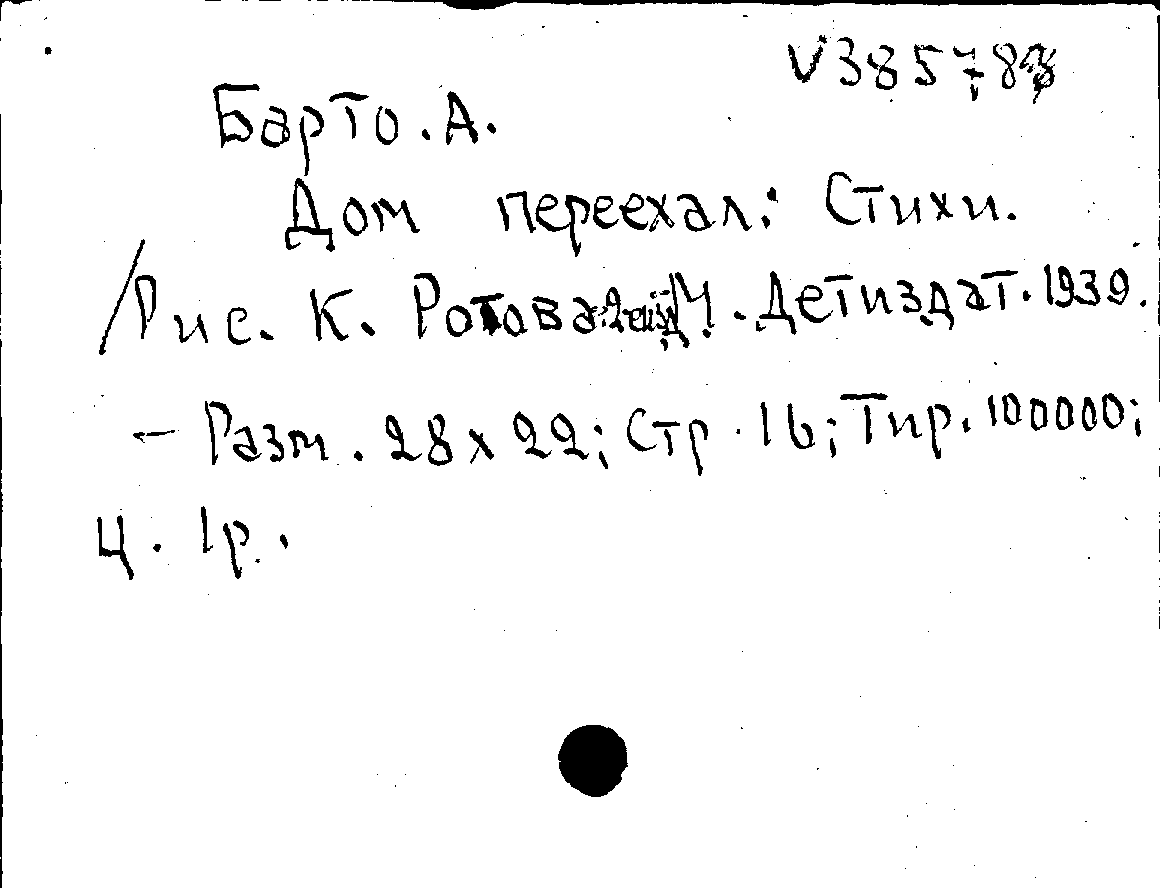 V38578
Барто. А.
Дом переехал: Стихи.
/Рис. К. Ротова. 2е изд М. Детиздат. 1939.
- Разм. 28 x 22; Стр. 16; Тир. 100000;
Ц. 1р.